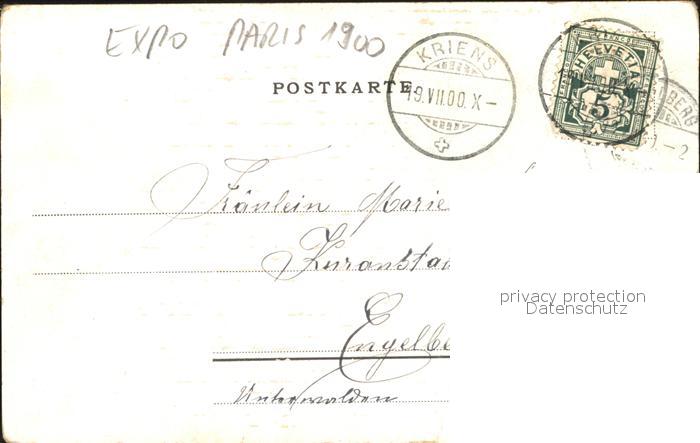 EXPO PARIS 1900
KRIENS
19.VII.00.X-
POSTKARTE
HELVETIA
5
BERG
-2
Fräulein Marie
Kuransta
Engelbe
Unterwalden
privacy protection
Datenschutz